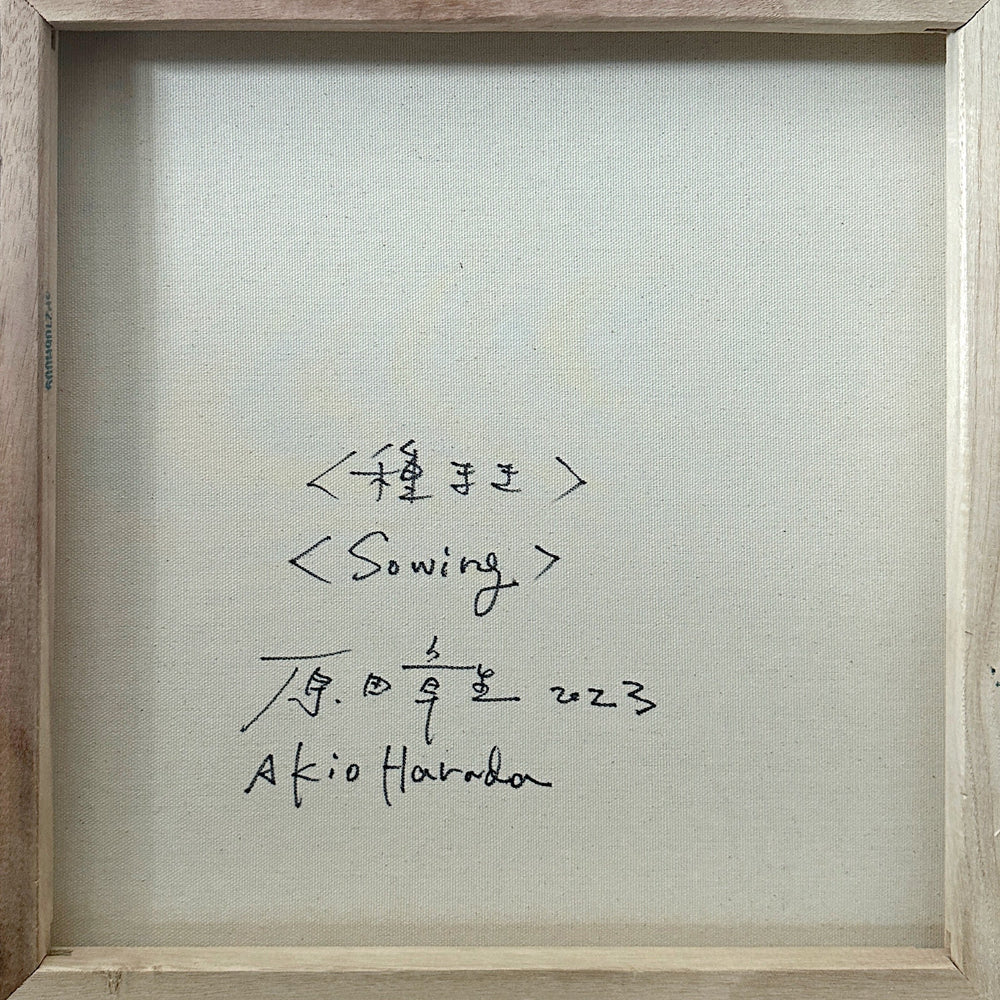 <種まき>
<Sowing>
原田章生 2023
Akio Harada